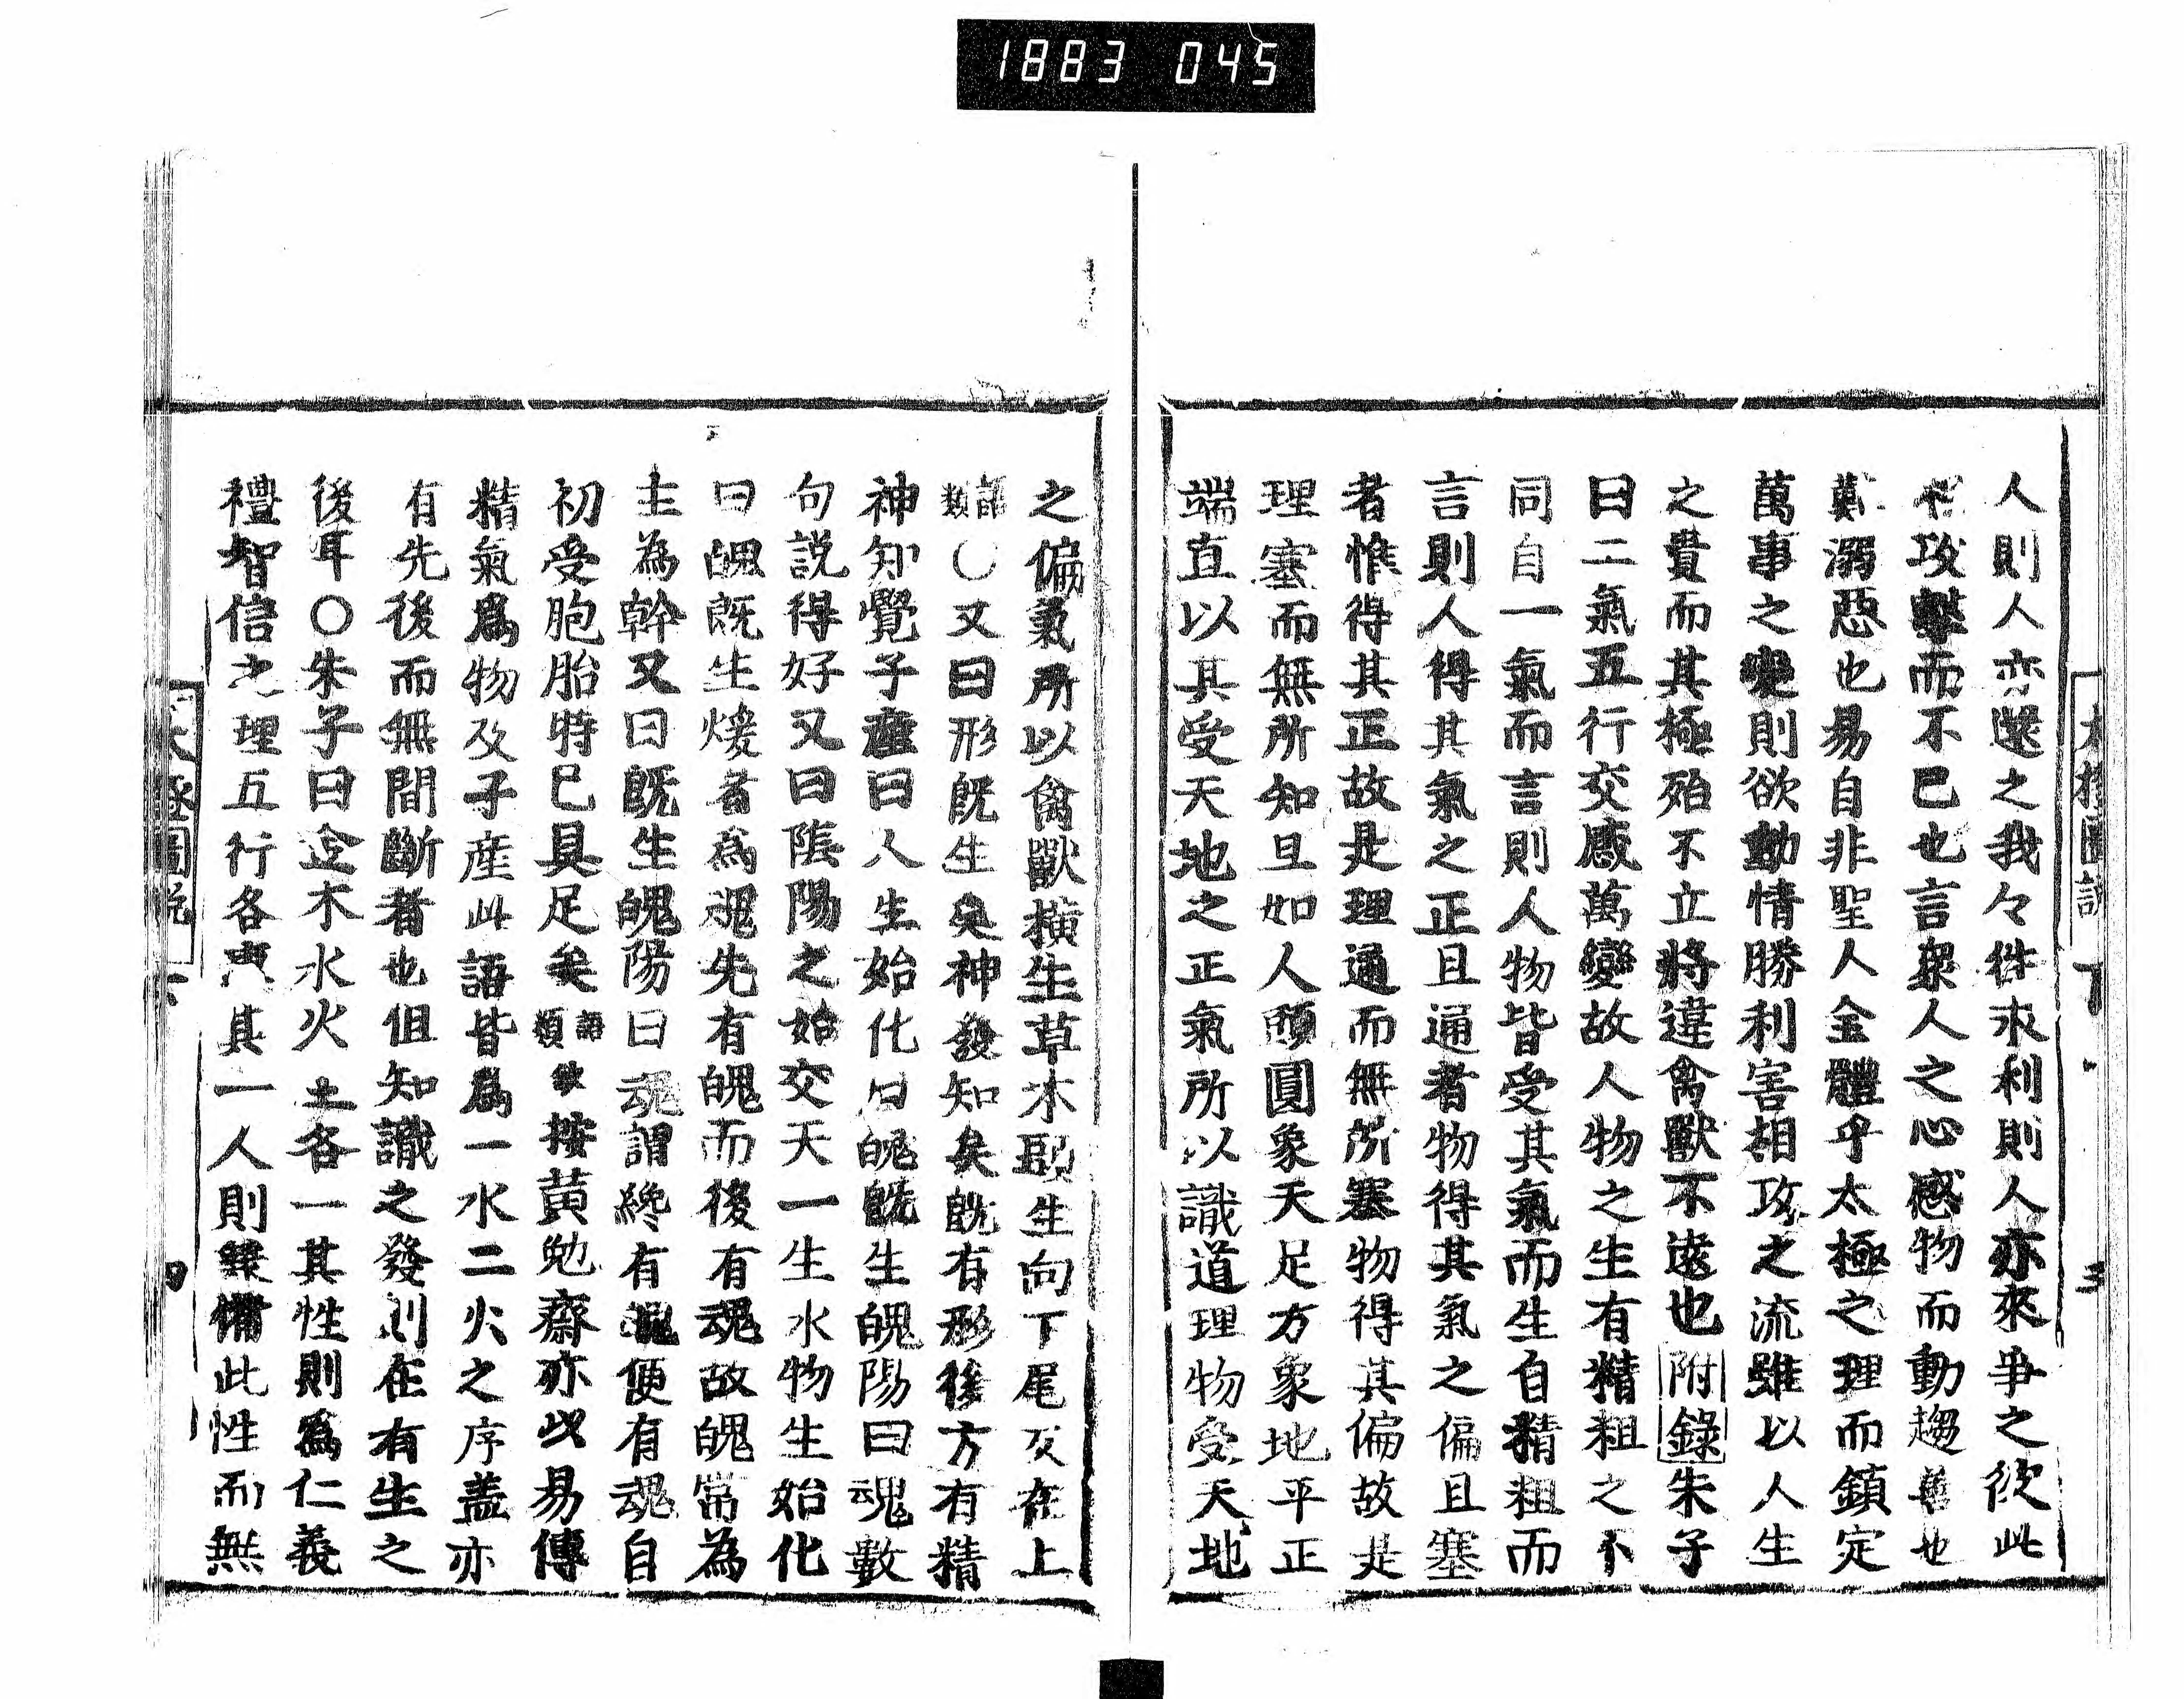 1883 045
人則人亦還之我々往求利則人亦來爭之彼此
攻擊而不已也言衆人之心感物而動趨善也
難溺惡也易自非聖人全體乎太極之理而鎮定
萬事之變則欲動情勝利害相攻之流雖以人生
之貴而其極殆不立將違禽獸不遠也附錄朱子
曰二氣五行交感萬變故人物之生有精粗之不
同自一氣而言則人物皆受其氣而生自精粗而
言則人得其氣之正且通者物得其氣之偏且塞
者惟得其正故是理通而無所塞物得其偏故是
理塞而無所知且如人頭圓象天足方象地平正
端直以其受天地之正氣所以識道理物受天地
太極圖說 下 三
之偏氣所以禽獸橫生草木頭生向下尾反在上
語類〇又曰形既生矣神發知矣既有形後方有精
神知覺子產曰人生始化曰魄既生魄陽曰魂數
句説得好又曰陰陽之始交天一生水物生始化
曰魄既生煖者為魂先有魄而後有魂故魄常為
主為幹又曰既生魄陽曰魂謂纔有魄便有魂自
初受胞胎時已具足矣語類按黃勉齋亦以易傳
精氣爲物及子産此語皆爲一水二火之序蓋亦
有先後而無間斷者也但知識之發則在有生之
後耳〇朱子曰金木水火土各一其性則爲仁義
禮智信之理五行各專其一人則兼備此性而無
太極圖說 下 四